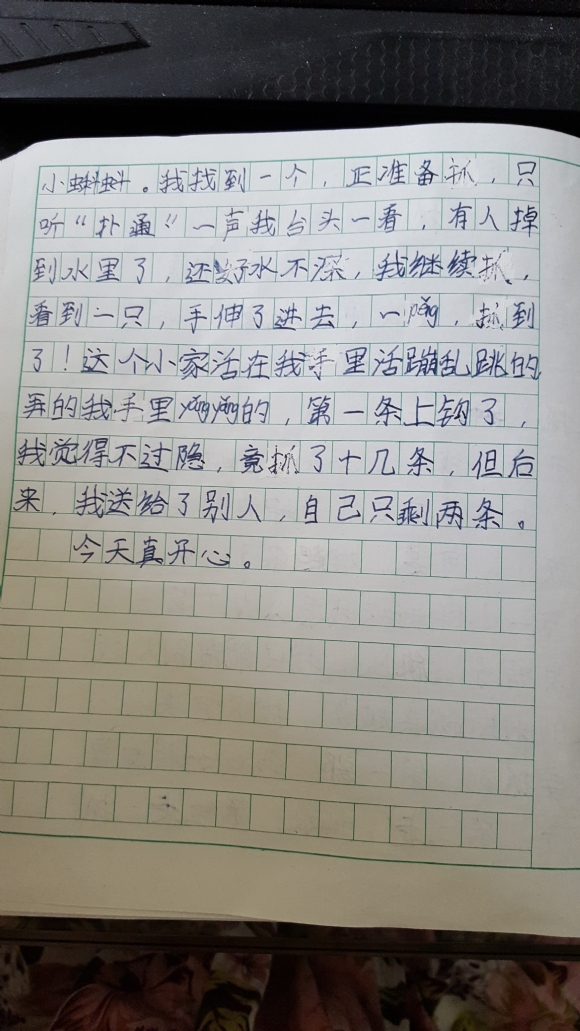 小蝌蚪。我找到一个，正准备抓，只
听“扑通”一声我台头一看，有人掉
到水里了，还好水不深，我继续抓，
看到一只，手伸了进去，一pěng，抓到
了！这个小家活在我手里活蹦乱跳的
弄的我手里yǎngyǎng的，第一条上钩了，
我觉得不过隐，竟抓了十几条，但后
来，我送给了别人，自己只剩两条。
今天真开心。